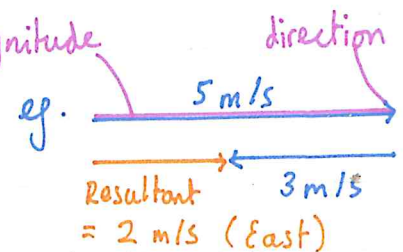 nitude
direction
eg.
5 m/s
Resultant
3 m/s
= 2 m/s (East)